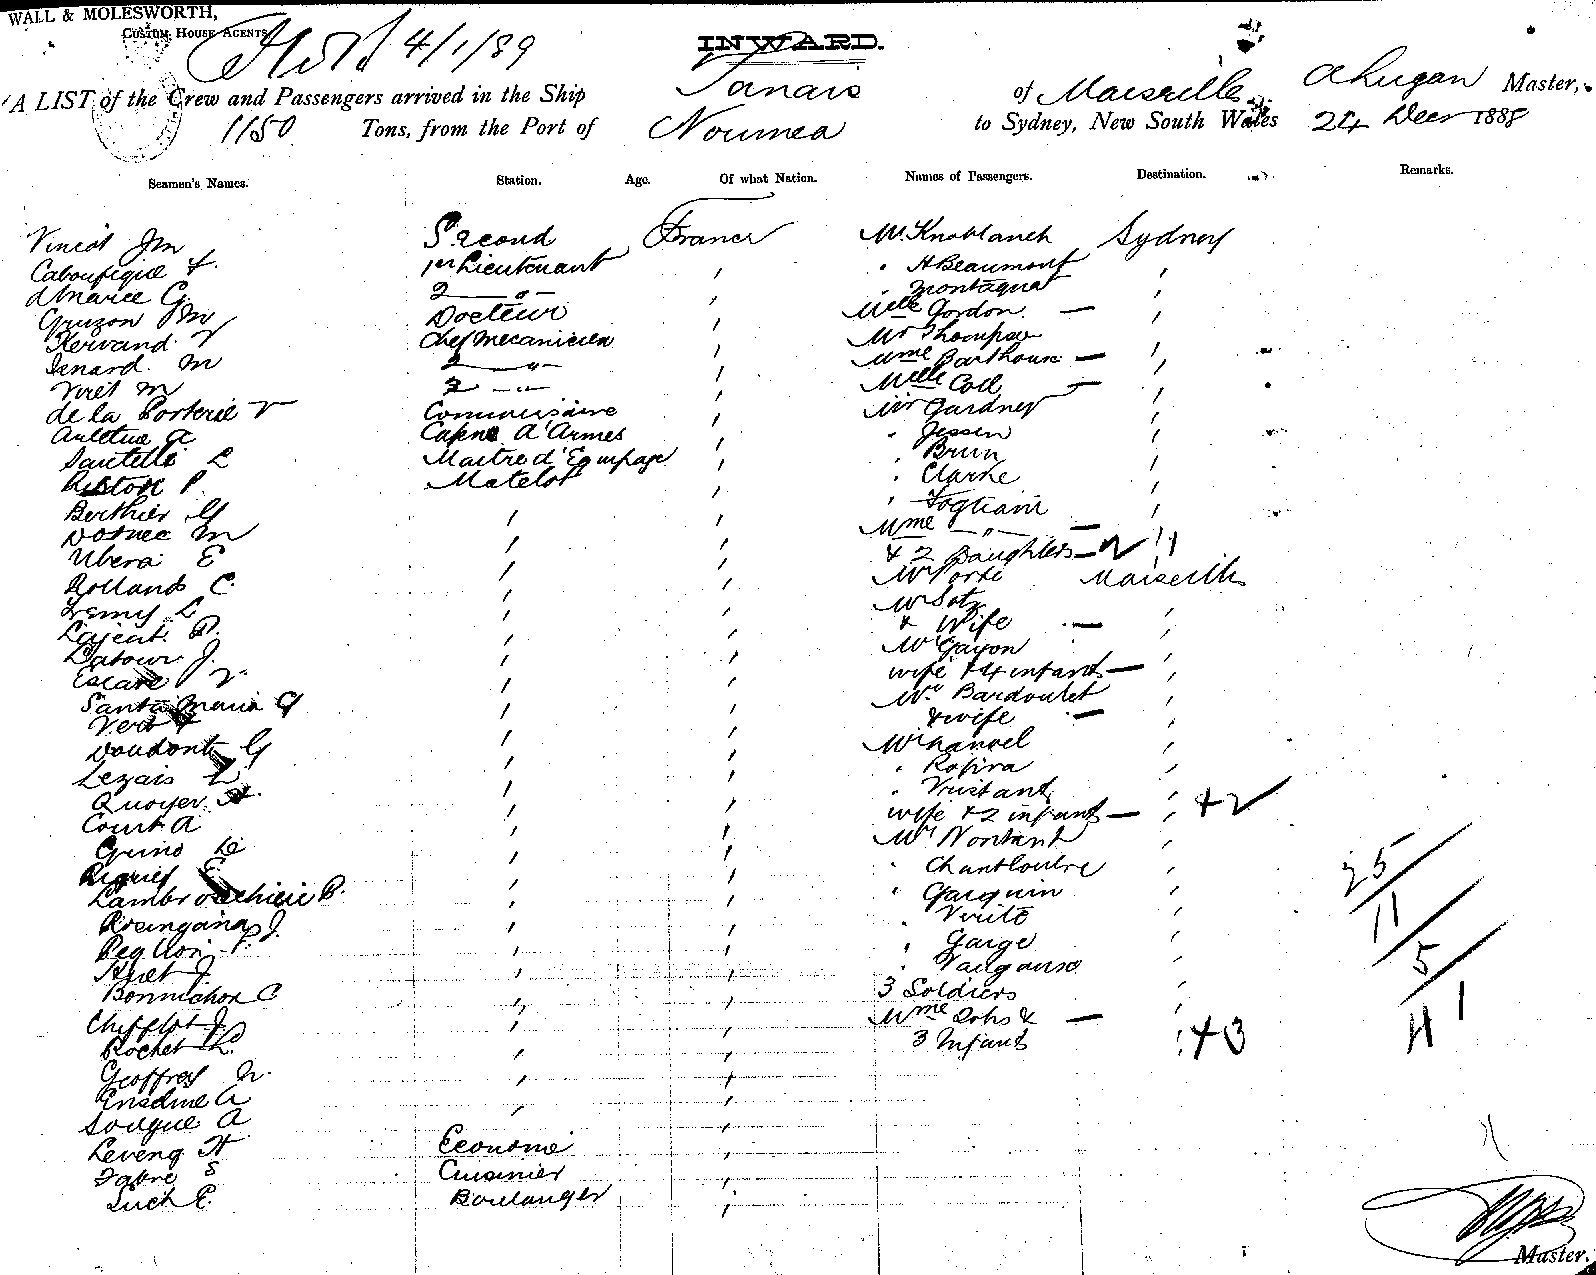 WALL & MOLESWORTH,
CUSTOM HOUSE AGENTS
4/1/89
INWARD.
A LIST of the Crew and Passengers arrived in the Ship Tanais of Marseille A Lugan Master,
1150 Tons, from the Port of Noumea to Sydney, New South Wales 24 Decr 1888
Seamen's Names. Station. Age. Of what Nation. Names of Passengers. Destination. Remarks.
Vincot Jm Second France Mr. Knoblanch Sydney
Caboufigue F. 1er Lieutenant " H Beaumont
G. 2 — " — " Montagnat
Gruzon Jm Docteur Melle Gordon —
Kervand V Chef Mecanicien Mr Thompson
Isnard. M 2 — " — Mme Barthoun —
Viret M 2 — " — Melle Coll —
de la Porterie V Commissaire Mr Gardner
A Capne d'Armes " Jessen
Santelli L Maitre d'Equipage " Brun
P. Matelot " Clarke
Berthier G " Fogliani
M Mme — " — —
Ubera E & 2 Daughters —
Rolland C. Mr Porte Marseille
Fremy L Mr Sotz
P. & Wife —
Latour J. Mr Gayon
Escare V wife & 4 infants —
Santa Maria G Mr Bardoulet
Vero & wife —
Doudont G Mr Manoel
Lezais L " Rofira
Quoyer A " Tristant
Court A wife & 2 infants — +2
Grino Mr Nontant
Chantloubre
B. " Garguin
J. " Verité
" Garge
Huet J "
Bonnichon C 3 Soldiers
Chifflot J Mme & —
Rochet L. 3 Infants +3
Geoffroy
Enselme A
Sougue A
Leveng H Econome
Fabre E Cuisinier
Luch E. Boulanger
25
11
5
41
Master.